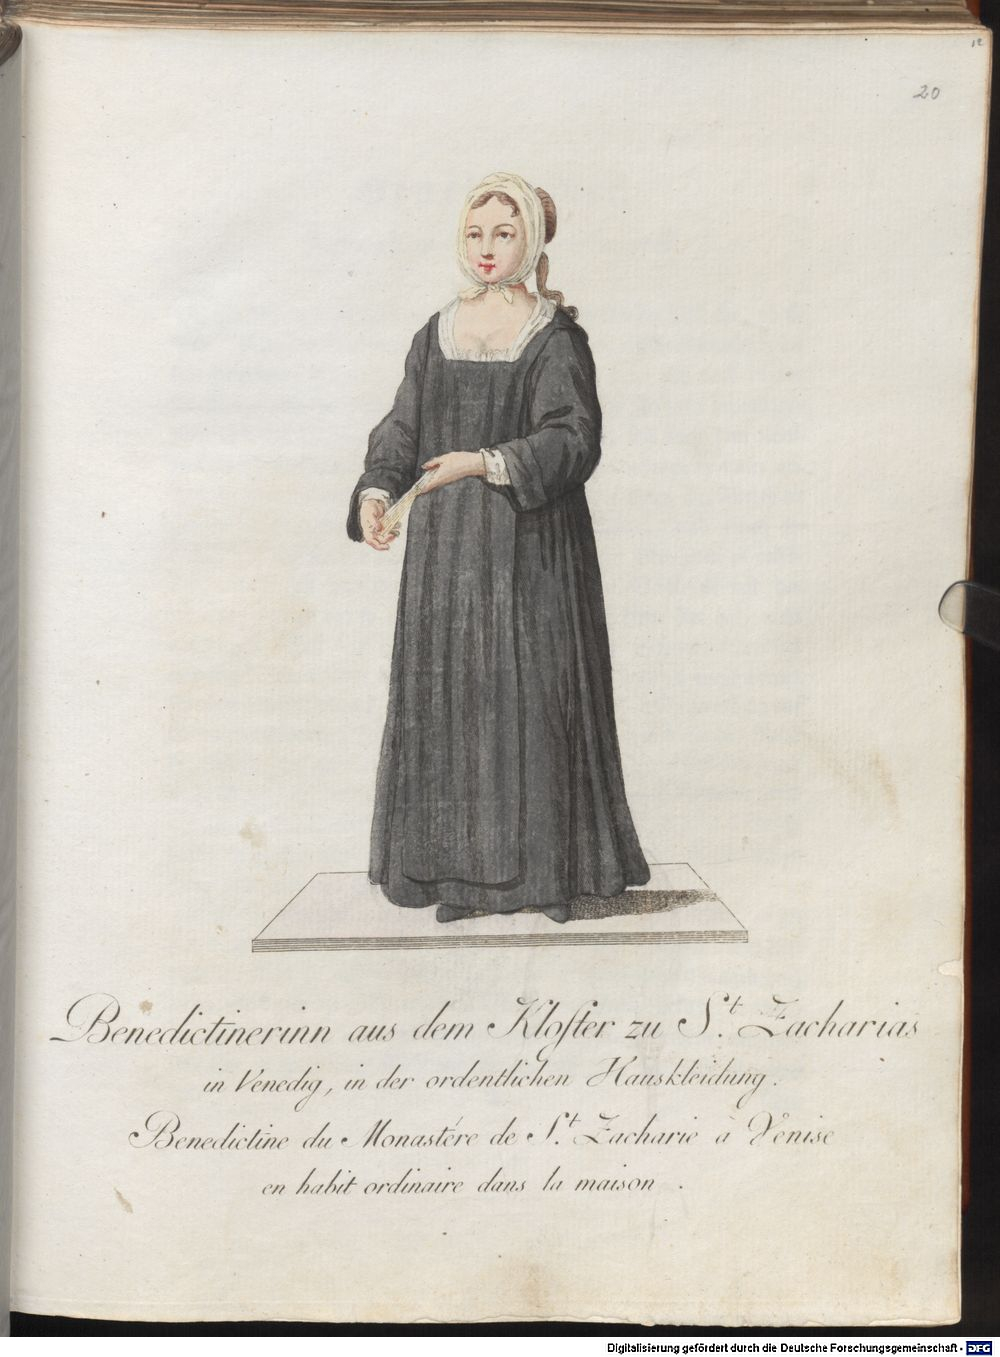 12
20
Benedictinerinn aus dem Kloster zu S.t Zacharias
in Venedig, in der ordentlichen Hauskleidung.
Benedictine du Monastére de S.t Zacharie à Venise
en habit ordinaire dans la maison.
Digitalisierung gefördert durch die Deutsche Forschungsgemeinschaft - DFG